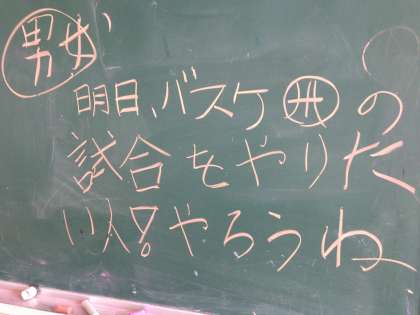 男
明日、バスケの
試合をやりた
い人!やろうね